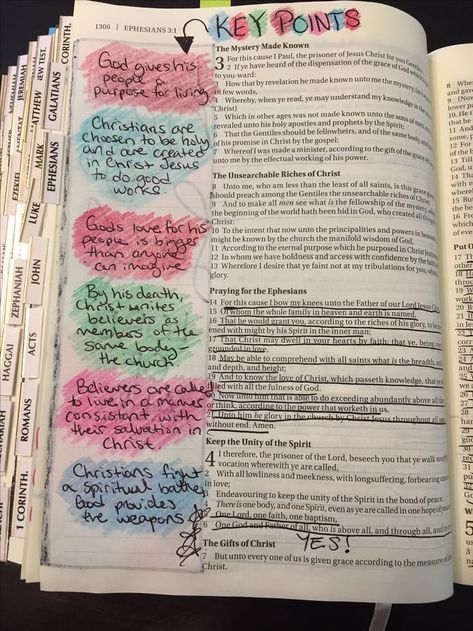 1306 | EPHESIANS 3:1
KEY POINTS
God gives his
people a
purpose for living
Christians are
chosen to be holy
and are created
in Christ Jesus
to do good
works.
Gods love for his
people is bigger
than anyone
can imagive
By his death,
Christ unites
believers as
members of the
same body
the church.
Believers are called
to live in a manner
consistant with
their salvation in
Christ.
Christians fight
a spiritual battle
God provides
the weapons
The Mystery Made Known
3 For this cause I Paul, the prisoner of Jesus Christ for you Gentiles,
2 If ye have heard of the dispensation of the grace of God which
to you-ward:
3 How that by revelation he made known unto me the mystery;
in few words,
4 Whereby, when ye read, ye may understand my knowledge in the
Christ)
5 Which in other ages was not made known unto the sons of men,
revealed unto his holy apostles and prophets by the Spirit;
6 That the Gentiles should be fellowheirs, and of the same body, and
of his promise in Christ by the gospel:
7 Whereof I was made a minister, according to the gift of the grace of
unto me by the effectual working of his power.
The Unsearchable Riches of Christ
8 Unto me, who am less than the least of all saints, is this grace given,
should preach among the Gentiles the unsearchable riches of Christ;
9 And to make all men see what is the fellowship of the mystery, which
the beginning of the world hath been hid in God, who created all things
Christ:
10 To the intent that now unto the principalities and powers in heavenly
might be known by the church the manifold wisdom of God,
11 According to the eternal purpose which he purposed in Christ Jesus
12 In whom we have boldness and access with confidence by the faith
13 Wherefore I desire that ye faint not at my tribulations for you, which
glory.
Praying for the Ephesians
14 For this cause I bow my knees unto the Father of our Lord Jesus Christ,
15 Of whom the whole family in heaven and earth is named,
16 That he would grant you, according to the riches of his glory, to be
ened with might by his Spirit in the inner man;
17 That Christ may dwell in your hearts by faith; that ye, being
grounded in love,
18 May be able to comprehend with all saints what is the breadth, and
and depth, and height;
19 And to know the love of Christ, which passeth knowledge, that ye
led with all the fulness of God.
20 Now unto him that is able to do exceeding abundantly above all
or think, according to the power that worketh in us,
21 Unto him be glory in the church by Christ Jesus throughout all
without end. Amen.
Keep the Unity of the Spirit
4 I therefore, the prisoner of the Lord, beseech you that ye walk
vocation wherewith ye are called,
2 With all lowliness and meekness, with longsuffering, forbearing one
in love;
3 Endeavouring to keep the unity of the Spirit in the bond of peace.
4 There is one body, and one Spirit, even as ye are called in one hope of
5 One Lord, one faith, one baptism,
6 One God and Father of all, who is above all, and through all, and in
YES!
The Gifts of Christ
7 But unto every one of us is given grace according to the measure of the
Christ.
CORINTH.
GALATIANS
EPHESIANS
JEREMIAH
NEW TEST.
MATTHEW
MARK
LUKE
JOHN
ACTS
ROMANS
1 CORINTH.
ZEPHANIAH
HAGGAI
Put O